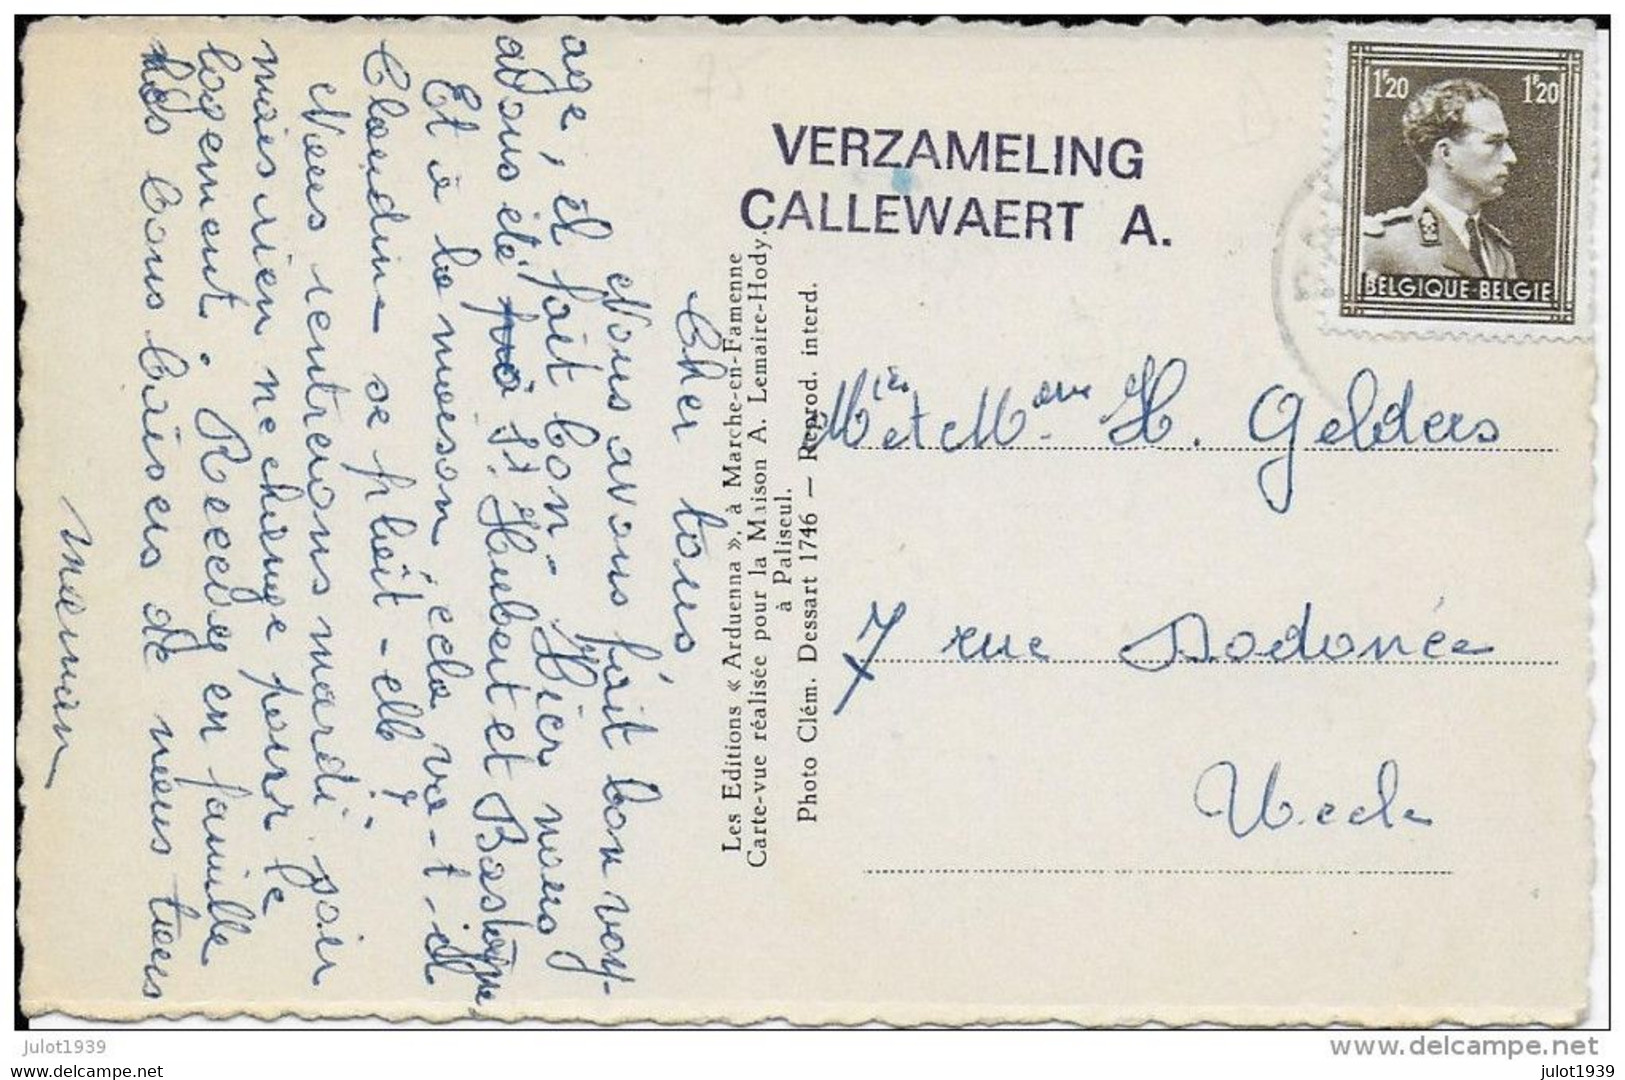 Cher tous
Nous avons fait bon voy-
age, il fait bon. Hier nous
avons été à St Hubert et Bastogne
Et à la maison, cela va-t-il
Claudine se plaît-elle?
Nous rentrerons mardi soir
mais rien ne change pour le
logement. Recevez en famille
les bons baisers de nous tous
Maman
Les Editions « Arduenna », à Marche-en-Famenne
Carte-vue réalisée pour la Maison A. Lemaire-Hody,
à Paliseul.
Photo Clém. Dessart 1746 — Reprod. interd.
VERZAMELING
CALLEWAERT A.
1F20 1F20
BELGIQUE-BELGIE
et H. Gelders
7 rue Dodonée
Uccle
julot1939
www.delcampe.net
julot1939